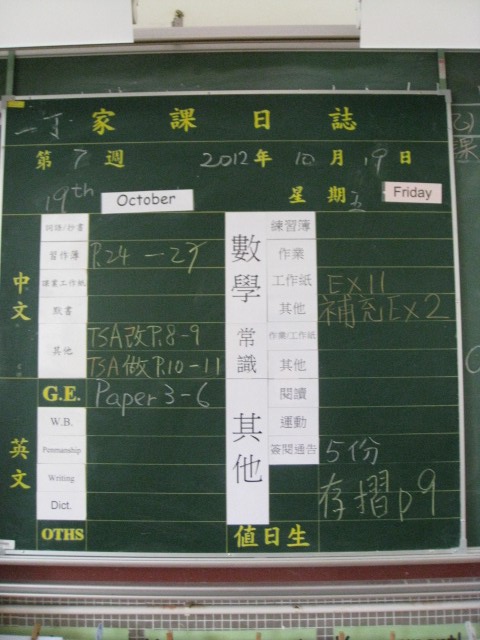 一丁 家課日誌
第 7 週 2012年 10月 19日
19th October 星期五 Friday
中文
詞語/抄書
習作簿 P.24 — 27
課業工作紙
默書
其他 TSA改P.8-9
TSA做P.10-11
英文
G.E. Paper 3-6
W.B.
Penmanship
Writing
Dict.
OTHS
數學
練習簿
作業
工作紙 EX11
其他 補充Ex2
常識
作業/工作紙
其他
其他
閱讀
運動
簽閱通告 5份
存摺p9
值日生